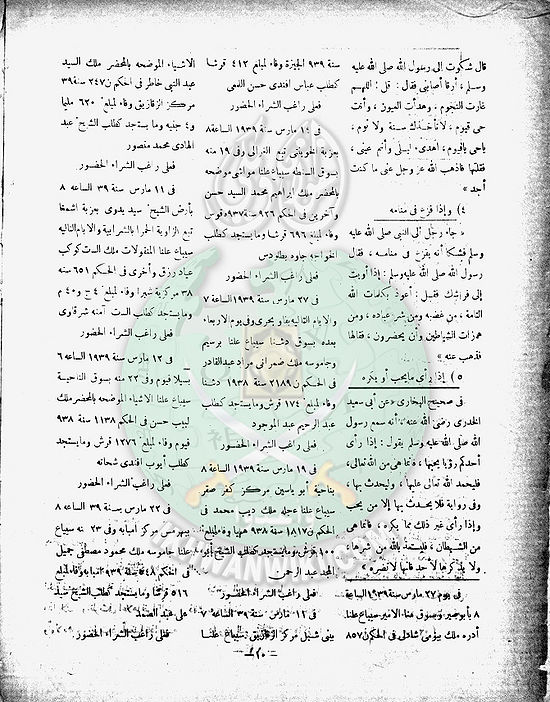 قال شكوت إلى رسول الله صلى الله عليه
وسلم ، أرقا أصابني فقال : قل : اللهم
غارت النجوم ، وهدأت العيون ، وأنت
حى قيوم ، لا تأخذك سنة ولا نوم ،
ياحى ياقيوم ، اهدىء ليلى وأنم عينى ،
فقلتها فأذهب الله عز وجل عنى ما كنت
أجد »
٤) وإذا فزع فى منامه
« جاء رجل إلى النبى صلى الله عليه
وسلم فشكا أنه يفزع فى منامه ، فقال
رسول الله صلى الله عليه وسلم : إذا أويت
إلى فراشك فقل : أعوذ بكلمات الله
التامة ، من غضبه ومن شر عباده ، ومن
همزات الشياطين وأن يحضرون ، فقالها
فذهب عنه »
٥) إذا رأى مايحب أو يكره
فى صحيح البخارى « عن أبى سعيد
الخدرى رضى الله عنه ، أنه سمع رسول
الله صلى الله عليه وسلم يقول : إذا رأى
أحدكم رؤيا يحبها ، فانما هى من الله تعالى ،
فليحمد الله تعالى عليها ، وليحدث بها ،
وفى رواية فلا يحدث بها إلا من يحب
وإذا رأى غير ذلك مما يكره ، فانما هى
من الشيطان ، فليستعذ بالله من شرها ،
ولا يذكرها لأحد فانها لا تضره »
فى يوم ٢٧ مارس سنة ١٩٣٩ الساعة
٨ بأبوصير وبسوق هنا الامير سيباع علنا
أدره ملك بيومى شاذلى فى الحكم ن ٨٥٧
سنة ٩٣٩ الجيزة وفاء لمبلغ ٤١٢ قرشا
كطلب عباس افندى حسن اللمعى
فعلى راغب الشراء الحضور
فى ١٥ مارس سنة ١٩٣٩ الساعة ٨
بعزبة الخوبانى تبع الغرالى وفى ١٩ منه
بسوق السنطه سيباع علنا مواشى موضحه
بالمحضر ملك ابراهيم محمد السيد حسن
وآخرين فى الحكم ٩٢٦ سنة ٩٣٧ قوس
وفاء لمبلغ ٦٩٦ قرشا وما يستجد كطلب
الخواجه جاوه بطلودس
فعلى راغب الشراء الحضور
فى ٢٧ مارس سنة ١٩٣٩ الساعة ٧
والايام التاليه بفاو بحرى وفى يوم الاربعاء
بعده بسوق دشنا سيباع علنا برسيم
وجاموسه ملك ضمرانى مراد عبدالقادر
فى الحكم ن ٢١٨٩ سنة ١٩٣٨ دشنا
وفاء لمبلغ ١٧٤ قرش وما يستجد كطلب
عبد الرحيم عبد الموجود
فعلى راغب الشراء الحضور
فى ١٩ مارس سنة ١٩٣٩ الساعة ٨
بناحية أبو ياسين مركز كفر صقر
سيباع علنا عجله ملك ديب محمد فى
الحكم ن ١٨١٧ سنة ٩٣٨ ههيا وفاء لمبلغ
١٠٠ قرش وما يستجد كطلب الشيخ أبو
المجد عبد الرحمن
فعلى راغب الشراء الحضور
فى ١٢ مارس سنة ١٩٣٩ الساعة ٧
ببنى شبل مركز الزقازيق سيباع علنا
الاشياء الموضحه بالمحضر ملك السيد
عبد النبى خاطر فى الحكم ن ٢٤٧ سنة ٣٩
مركز الزقازيق وفاء لمبلغ ٦٢٠ مليما
و ٤ جنيه وما يستجد كطلب الشيخ عبد
الهادى محمد منصور
فعلى راغب الشراء الحضور
فى ١١ مارس سنة ٣٩ الساعة ٨
بأرض الشيخ سيد بدوى بعزبة اشمعا
تبع الزاوية الحمرا بالشرابية والايام التاليه
سيباع علنا المنقولات ملك الست كوكب
عياد رزق وأخرى فى الحكم ٦٥١ سنه
٣٨ مركزية شبرا وفاء لمبلغ ٤ ج و ٤٠ م
وما يستجد كطلب الست آمنه شرقاوى
فعلى راغب الشراء الحضور
فى ١٢ مارس سنة ١٩٣٩ الساعه ٦
بسيلا فيوم وفى ٢٢ منه بسوق الناحية
سيباع علنا الاشياء الموضحه بالمحضر ملك
لبيب حسن فى الحكم ١١٣٨ سنه ٩٣٨
فيوم وفاء لمبلغ ١٢٧٦ قرش وما يستجد
كطلب أيوب افندى شحاته
فعلى راغب الشراء الحضور
فى ٢٢ مارس سنه ٣٩ الساعه ٨
ببهرمس مركز امبابه وفى ٢٣ منه سيباع
علنا جاموسه ملك محمود مصطفى جميل
فى الحكم ٤٨ سنة ٩٣٩ امبابه وفاء لمبلغ
٥١٦ قرشا وما يستجد كطلب الشيخ سيد
على عبد الصمد
فعلى راغب الشراء الحضور
—٢٠—